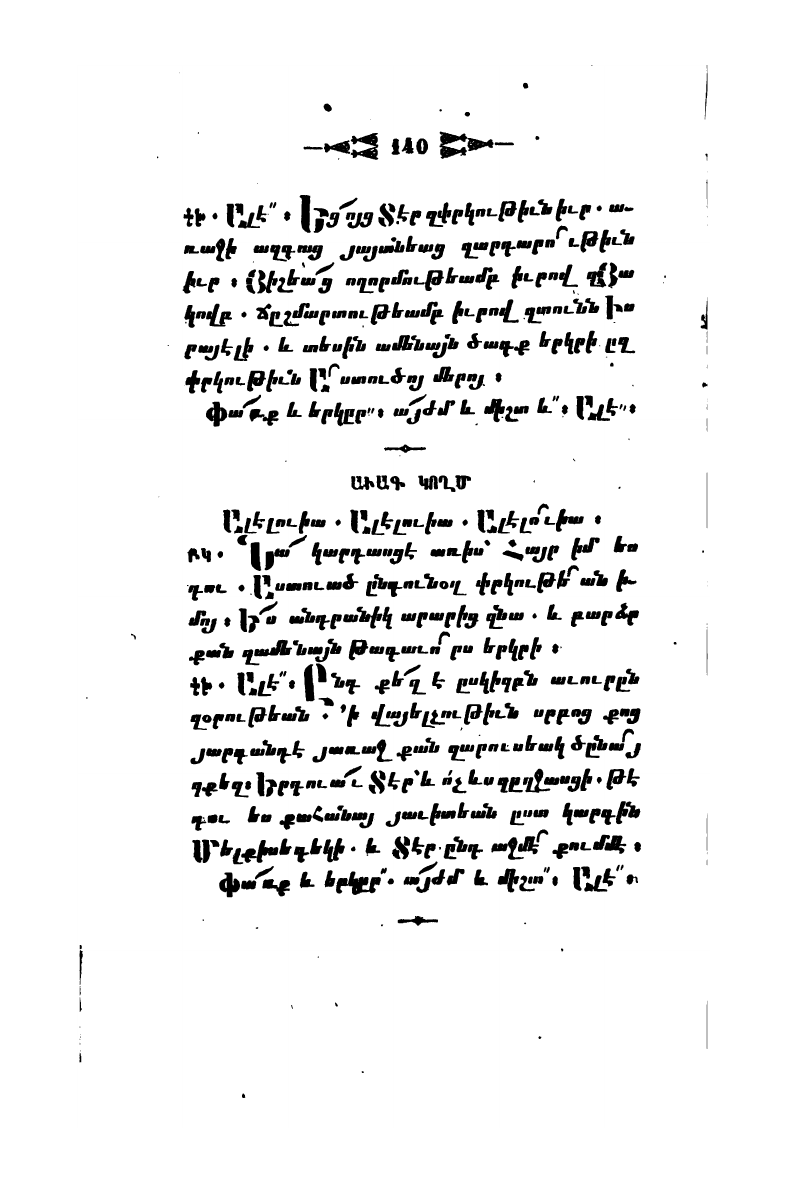 140
դի . Ալէ՟ ։ Եցո՛յց Տէր զփրկութիւն իւր . ա-
ռաջի ազգաց յայտնեաց զարդարո՜ւթիւն
իւր ։ Յիշեա՜ց ողորմութեամբ իւրով զՅա
կովբ . ճըշմարտութեամբ իւրով զտունն Իս
րայէլի . և տեսին ամենայն ծագք երկրի ըզ
փրկութիւն Ա՜ստուծոյ մերոյ ։
Փա՜ռք և երկըր՟ ։ ա՜յժմ և միշտ և՟ ։ Ալէ՟ ։
ԱՒԱԳ ԿՈՂՄ
Ալէլուիա . Ալէլուիա . Ալէլո՜ւիա ։
բկ . Նա՜ կարդասցէ առիս՝ Հայր իմ ես
դու . Աստուած ընդունօղ փրկութե՜ան ի-
մոյ ։ Ե՜ս անդրանիկ արարից զնա . և բարձր
քան զամենայն թագաւո՜րս երկրի ։
դի . Ալէ՟ ։ Ընդ քե՜զ է ըսկիզբն աւուրըն
զօրութեան . ՚ի վայելչութիւն սրբոց քոց
յարգանդէ յառաջ քան զարուսեակ ծընա՜յ
զքեզ ։ Երդուա՜ւ Տէր՝ և ո՛չ ևս զըղջասցի . թէ
դու ես քահանայ յաւիտեան ըստ կարգին
Մելքիսեդեկի . և Տէր ընդ աջմէ՜ քումմէ ։
Փա՜ռք և երկըր՟ . ա՜յժմ և միշտ՟ ։ Ալէ՟ ։